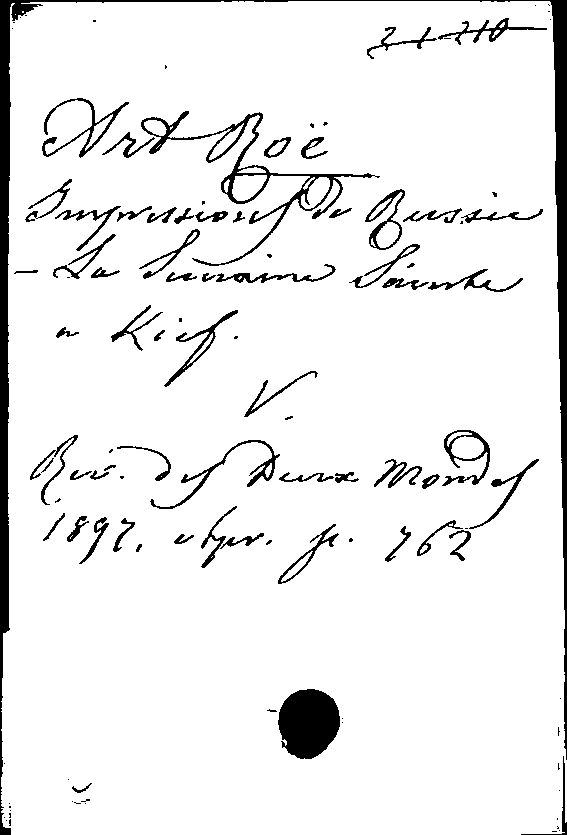 Art Roë
Impressions de Russie
- La Semaine Sainte
a Kief.
V.
Rev. des Deux Mondes
1897, p. 762